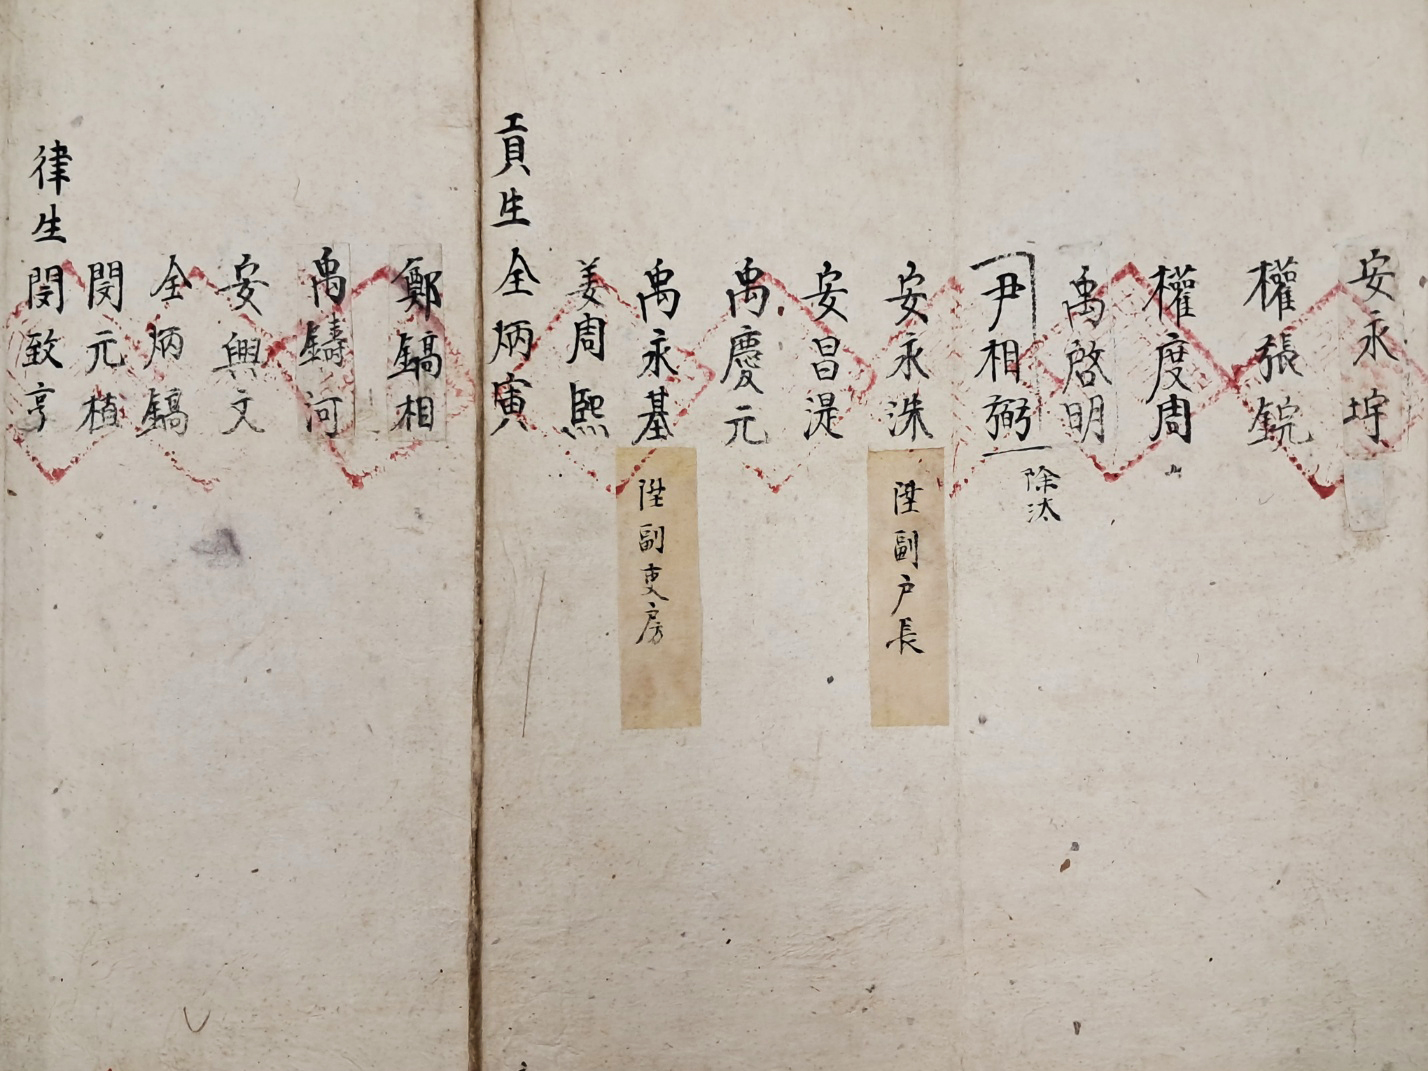 安永㘾
權張鋎
權度周
禹啓明
尹相弼
除汰
安永洙
陞副戶長
安昌湜
禹慶元
禹永基
陞副吏房
姜周熙
貢生 全炳寅
鄭鎬相
禹鑄河
安興文
全炳鎬
閔元植
律生 閔致亨